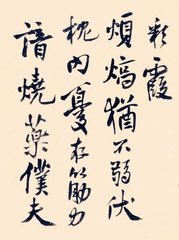 彩霞
煩熇猶不弱伏
枕内憂存筋力
請燒藥僕夫